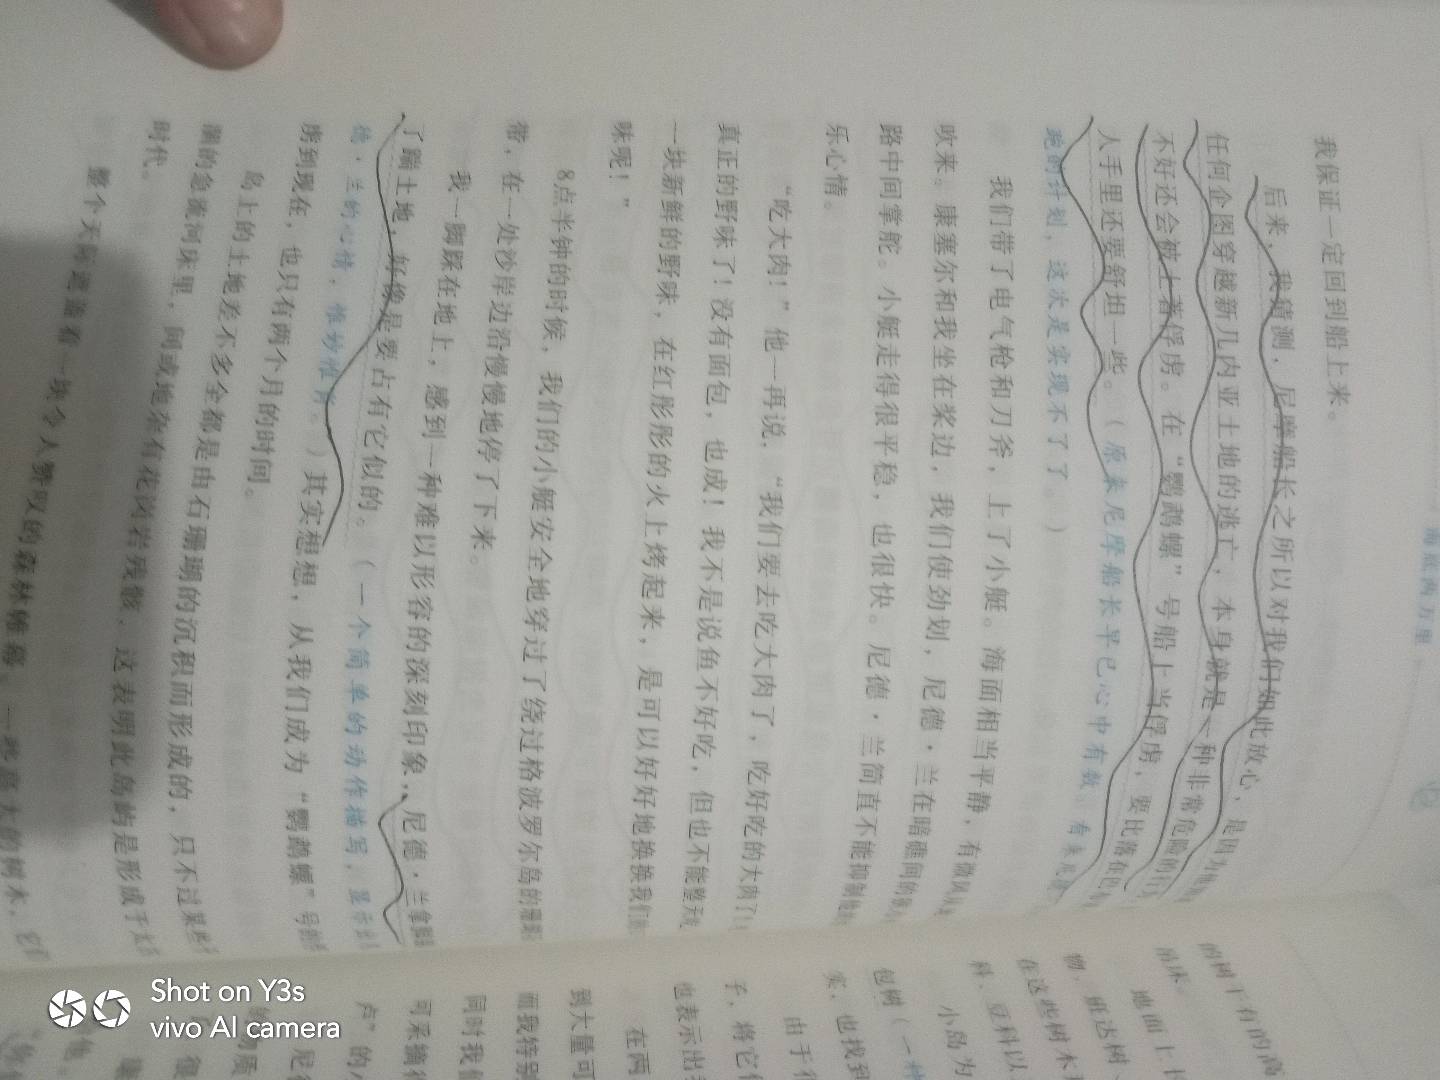 海底两万里
我保证一定回到船上来。
后来，我猜测，尼摩船长之所以对我们如此放心，是因为
任何企图穿越新几内亚土地的逃亡，本身就是一种非常危险的行
不好还会被土著俘虏。在“鹦鹉螺”号船上当俘虏，要比落在巴
人手里还要舒坦一些。（原来尼摩船长早已心中有数。看来尼德
跑的计划，这次是实现不了了。）
我们带了电气枪和刀斧，上了小艇。海面相当平静，有微风从
吹来。康塞尔和我坐在桨边，我们使劲划，尼德·兰在暗礁间的
路中间掌舵。小艇走得很平稳，也很快。尼德·兰简直不能抑制他的
乐心情。
“吃大肉！”他一再说，“我们要去吃大肉了，吃好吃的大肉了！
真正的野味了！没有面包，也成！我不是说鱼不好吃，但也不能整天吃
一块新鲜的野味，在红彤彤的火上烤起来，是可以好好地换换我们的
味呢！”
8点半钟的时候，我们的小艇安全地穿过了绕过格波罗尔岛的珊瑚
带，在一处沙岸边沿慢慢地停了下来。
我一脚踩在地上，感到一种难以形容的深刻印象，尼德·兰拿脚
了踹土地，好像是要占有它似的。（一个简单的动作描写，显示出
德·兰的心情，惟妙惟肖。）其实想想，从我们成为“鹦鹉螺”号的
虏到现在，也只有两个月的时间。
岛上的土地差不多全都是由石珊瑚的沉积而形成的，只不过某些
涸的急流河床里，间或地杂有花岗岩残骸，这表明此岛屿是形成于
时代。
整个天际遮盖着一块令人赞叹的森林帷幕。一些高大的树木，它
的树干有的高
吊床。
地面上
物，班达树、
在这些树木
科、豆科以
小岛为
包树（一种
实，也找到
由于
子，将它
也表示出
在两
到大量可
而我特别
同时我
可采摘
卢”的
尼
质
很
他。